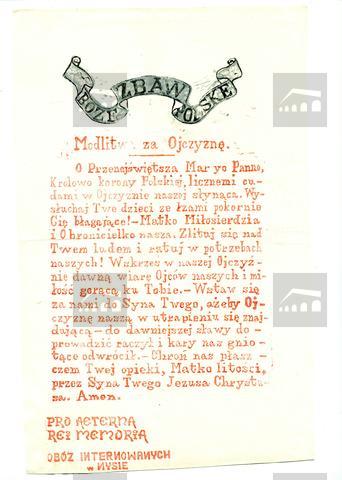 BOŻE ZBAW POLSKĘ
Modlitwa za Ojczyznę.
O Przenajświętsza Maryo Panno,
Królowo korony Polskiej, licznemi cu-
dami w Ojczyźnie naszej słynąca. Wy-
słuchaj Twe dzieci ze łzami pokornie
Cię błagające! – Matko Miłosierdzia
i Ochronicielko nasza. Zlituj się nad
Twem ludem i ratuj w potrzebach
naszych! Wskrzes w naszej Ojczyź-
nie dawną wiarę Ojców naszych i mi-
łość gorącą ku Tobie. – Wstaw się
za nami do Syna Twego, ażeby Oj-
czyznę naszą w utrapieniu się znaj-
dującą – do dawniejszej sławy do –
prowadzić raczył i kary nas gnio –
tące odwrócił. – Chroń nas płasz –
czem Twej opieki, Matko litości,
przez Syna Twego Jezusa Chrystu-
sa. Amen.
PRO AETERNA
REI MEMORIA
OBÓZ INTERNOWANYCH
w NYSIE